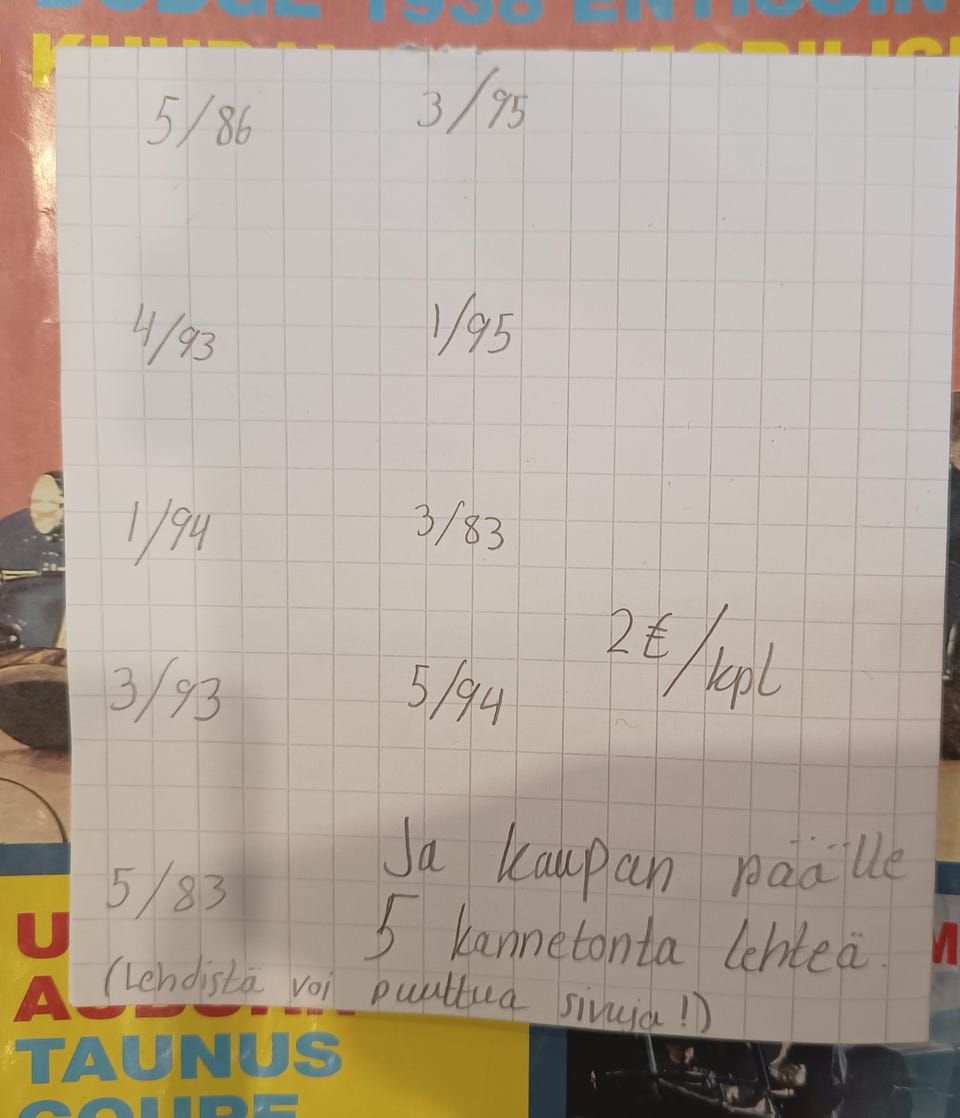 DODGE 1938
5/86 3/95
4/93 1/95
1/94 3/83
2€/kpl
3/93 5/94
Ja kaupan päälle
5/83 5 kannetonta lehteä.
(Lehdistä voi puuttua sivuja!)
TAUNUS
COUPE